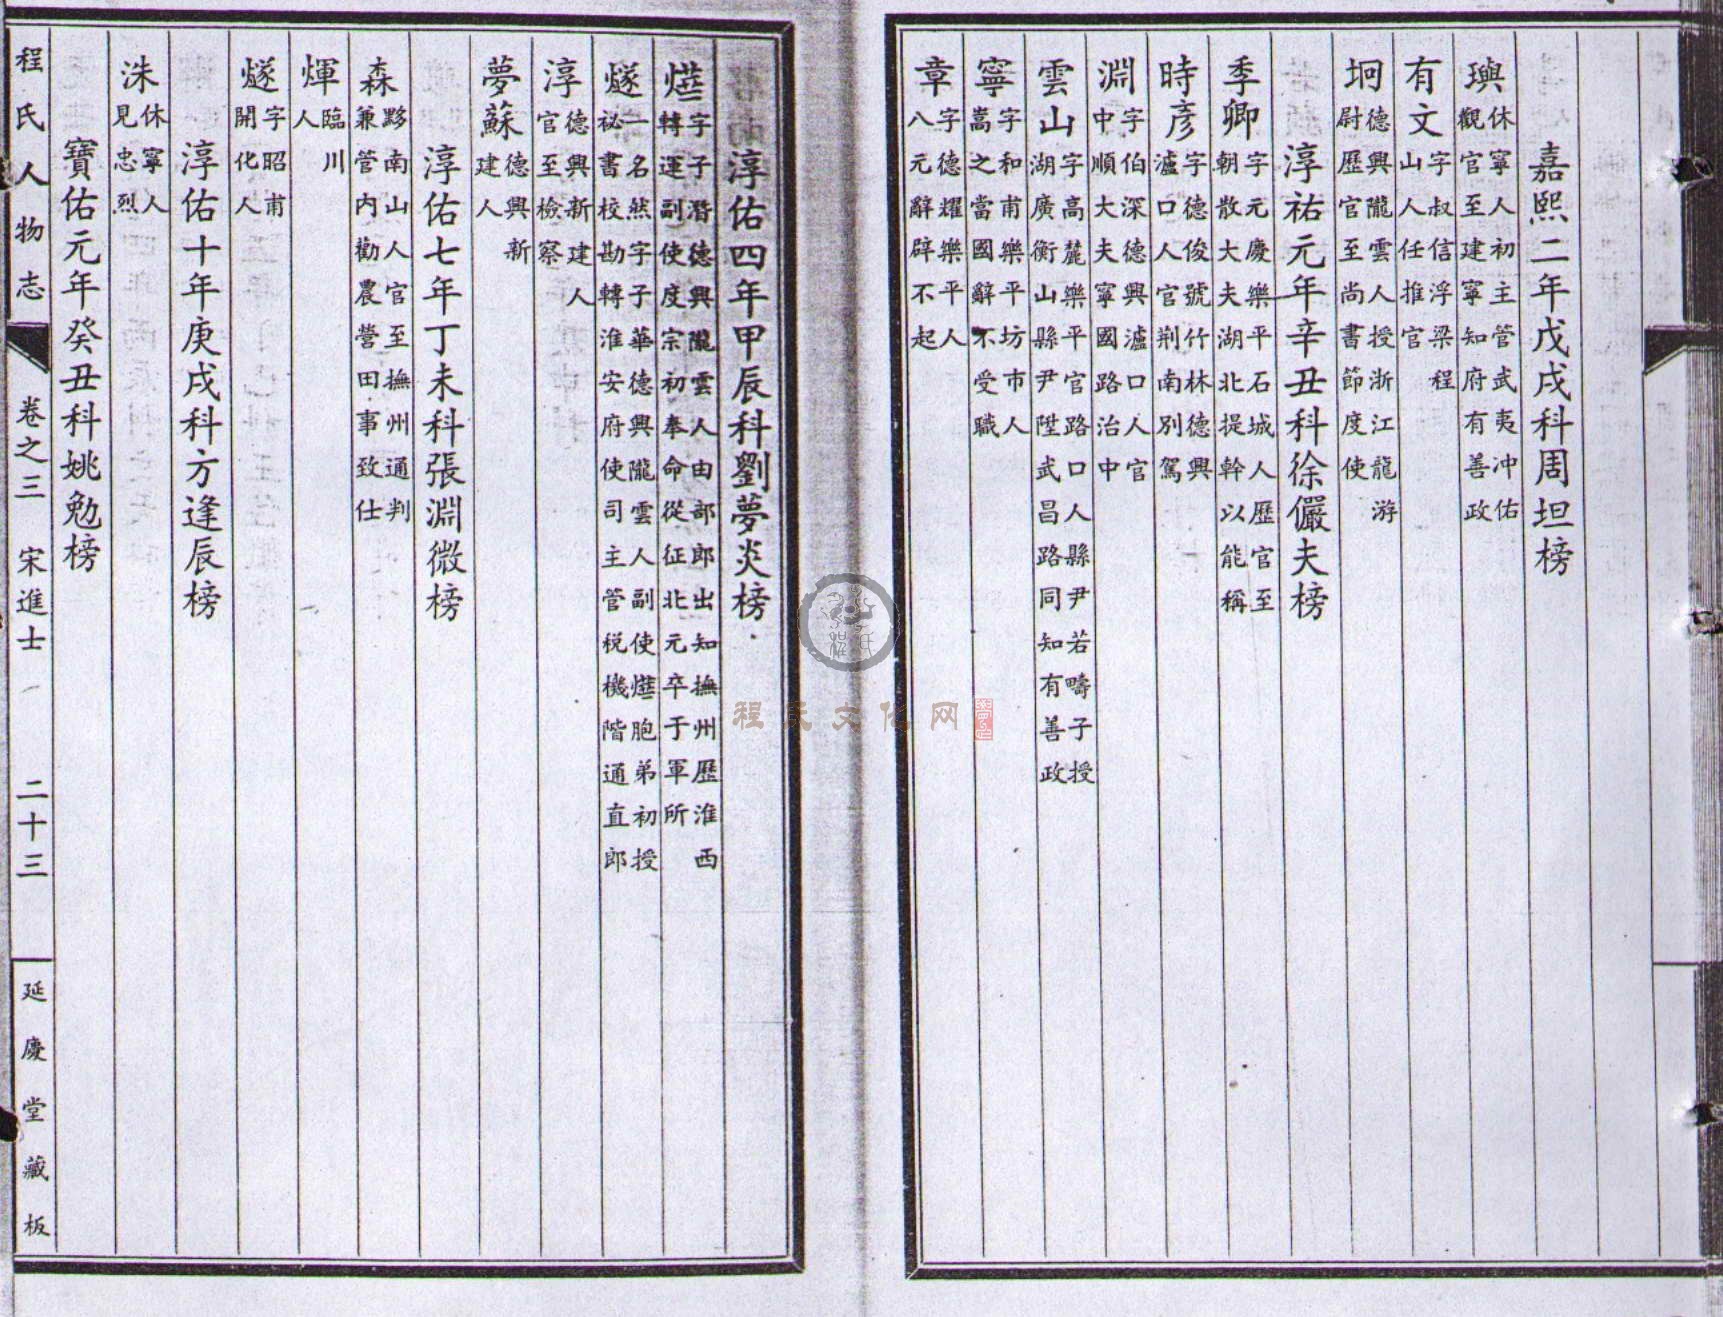 嘉熙二年戊戌科周坦榜
璵休寧人初主管武夷冲佑
觀官至建寧知府有善政
有文字叔信浮梁程
山人任推官
坰德興隴雲人授浙江龍游
尉歷官至尚書節度使
淳祐元年辛丑科徐儼夫榜
季卿字元慶樂平石城人歷官至
朝散大夫湖北提幹以能稱
時彦字德俊號竹林德興
瀘口人官荆南別駕
淵字伯深德興瀘口人官
中順大夫寧國路治中
雲山字高麓樂平官路口人縣尹若疇子授
湖廣衡山縣尹陞武昌路同知有善政
寧字和甫樂平坊市人
嵩之當國辭不受職
章字德耀樂平人
八元辭辟不起
淳佑四年甲辰科劉夢炎榜
字子潛德興隴雲人由部郎出知撫州歷淮西
轉運副使度宗初奉命從征北元卒于軍所
燧一名然字子華德興隴雲人副使胞弟初授
祕書校勘轉淮安府使司主管税機階通直郎
淳德興新建人
官至檢察
夢蘇德興新
建人
淳佑七年丁未科張淵微榜
森黟南山人官至撫州通判
兼管内勸農營田事致仕
煇臨川
人
燧字昭甫
開化人
淳佑十年庚戌科方逢辰榜
洙休寧人
見忠烈
寶佑元年癸丑科姚勉榜
程氏人物志 卷之三 宋進士 二十三 延慶堂藏板
程氏文化网